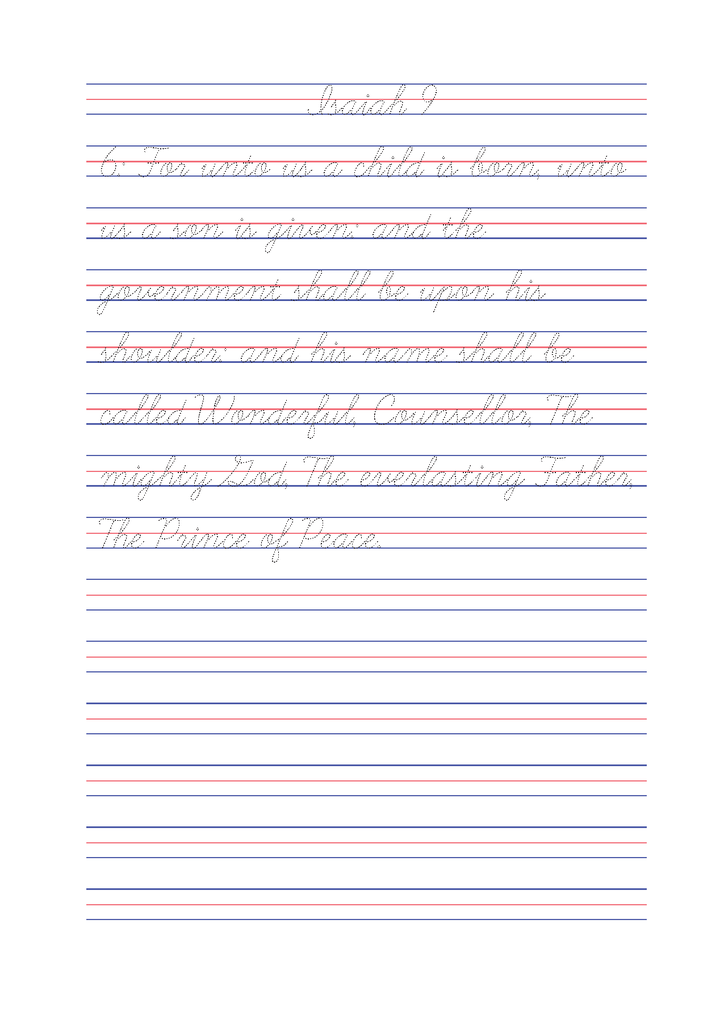 Isaiah 9
6: For unto us a child is born, unto
us a son is given: and the
government shall be upon his
shoulder: and his name shall be
called Wonderful, Counsellor, The
mighty God, The everlasting Father,
The Prince of Peace.